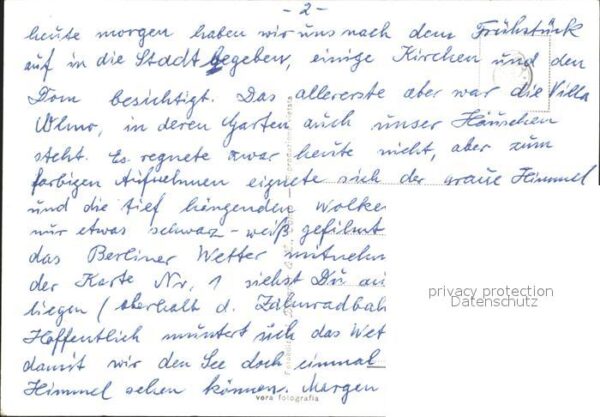 - 2 -
heute morgen haben wir uns nach dem Frühstück
auf in die Stadt begeben, einige Kirchen und den
Dom besichtigt. Das allererste aber war die Villa
Olmo, in deren Garten auch unser Häuschen
steht. Es regnete zwar heute nicht, aber zum
farbigen Aufnehmen eignete sich der graue Himmel
und die tief hängenden Wolke
nur etwas schwarz-weiß gefilmt
das Berliner Wetter mitnehm
der Karte Nr. 1 siehst Du au
liegen (oberhalb d. Zahnradbah
Hoffentlich muntert sich das Wet
damit wir den See doch einmal
Himmel sehen können. Morgen
privacy protection
Datenschutz
vera fotografia